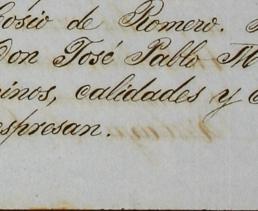 Cosio de Romero.
Don José Pablo M
minos, calidades y
espresan.